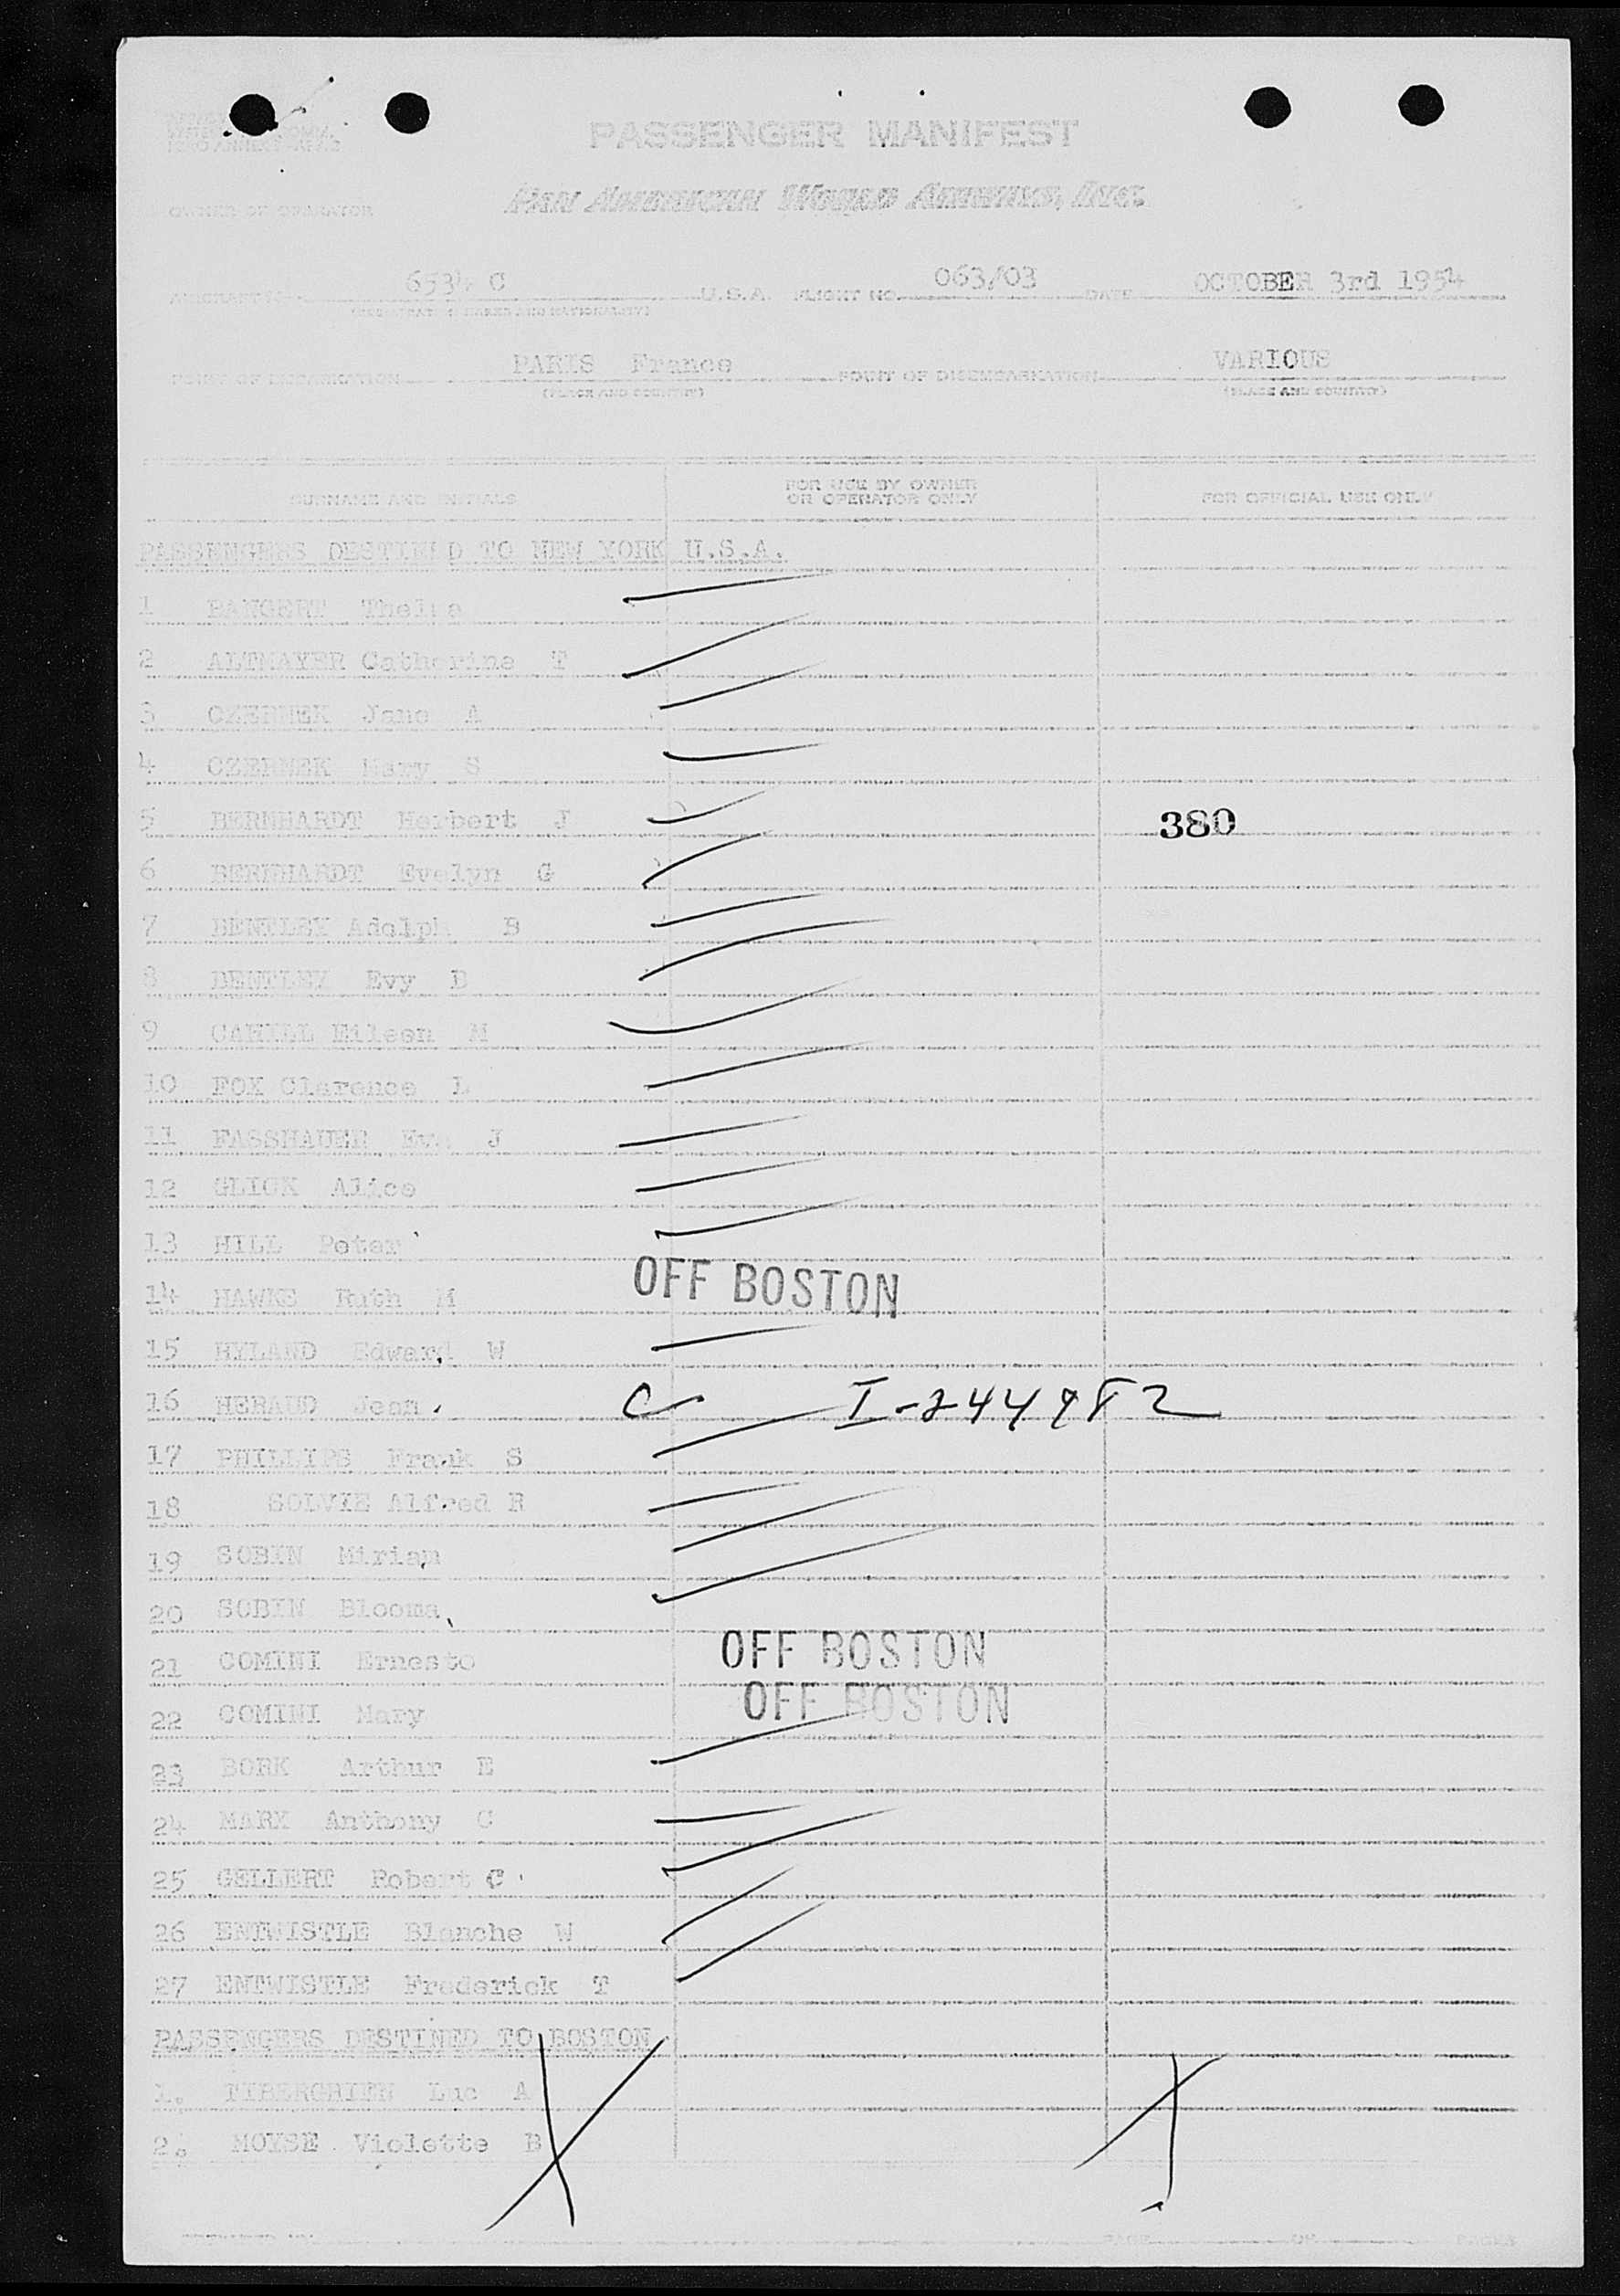 PASSENGER MANIFEST
PAN AMERICAN WORLD AIRWAYS, INC.
OWNER OR OPERATOR
6534 C U.S.A. FLIGHT NO. 063/03 DATE OCTOBER 3rd 1954
POINT OF EMBARKATION PARIS France POINT OF DISEMBARKATION VARIOUS
(PLACE AND COUNTRY) (PLACE AND COUNTRY)
SURNAME AND INITIALS FOR USE BY OWNER OR OPERATOR ONLY FOR OFFICIAL USE ONLY
PASSENGERS DESTINED TO NEW YORK U.S.A.
1 BANGERT Thelma
2 ALTMAYER Catherine T
3 CZERNEK Jane A
4 CZERNEK Mary S
5 BERNHARDT Herbert J 380
6 BERNHARDT Evelyn G
7 BENTLEY Adolph B
8 BENTLEY Evy B
9 CAHILL Eileen M
10 FOX Clarence L
11 FASSHAUER J
12 GLICK Alice
13 HILL Peter
14 HAWKS Ruth M OFF BOSTON
15 HYLAND Edward W
16 HERAUD Jean C I-244982
17 PHILLIPS Frank S
18 SOLVIE Alfred R
19 SOBIN Miriam
20 SOBIN Blooma
21 COMINI Ernesto OFF BOSTON
22 COMINI Mary OFF BOSTON
23 BORK Arthur E
24 MARX Anthony C
25 GELLERT Robert C
26 ENTWISTLE Blanche W
27 ENTWISTLE Frederick T
PASSENGERS DESTINED TO BOSTON
1. TIBERGHIEN Luc A
2. MOYSE Violette B
PAGE OF PAGES